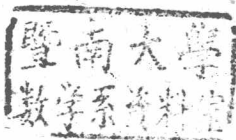 暨南大學
数学系资料室